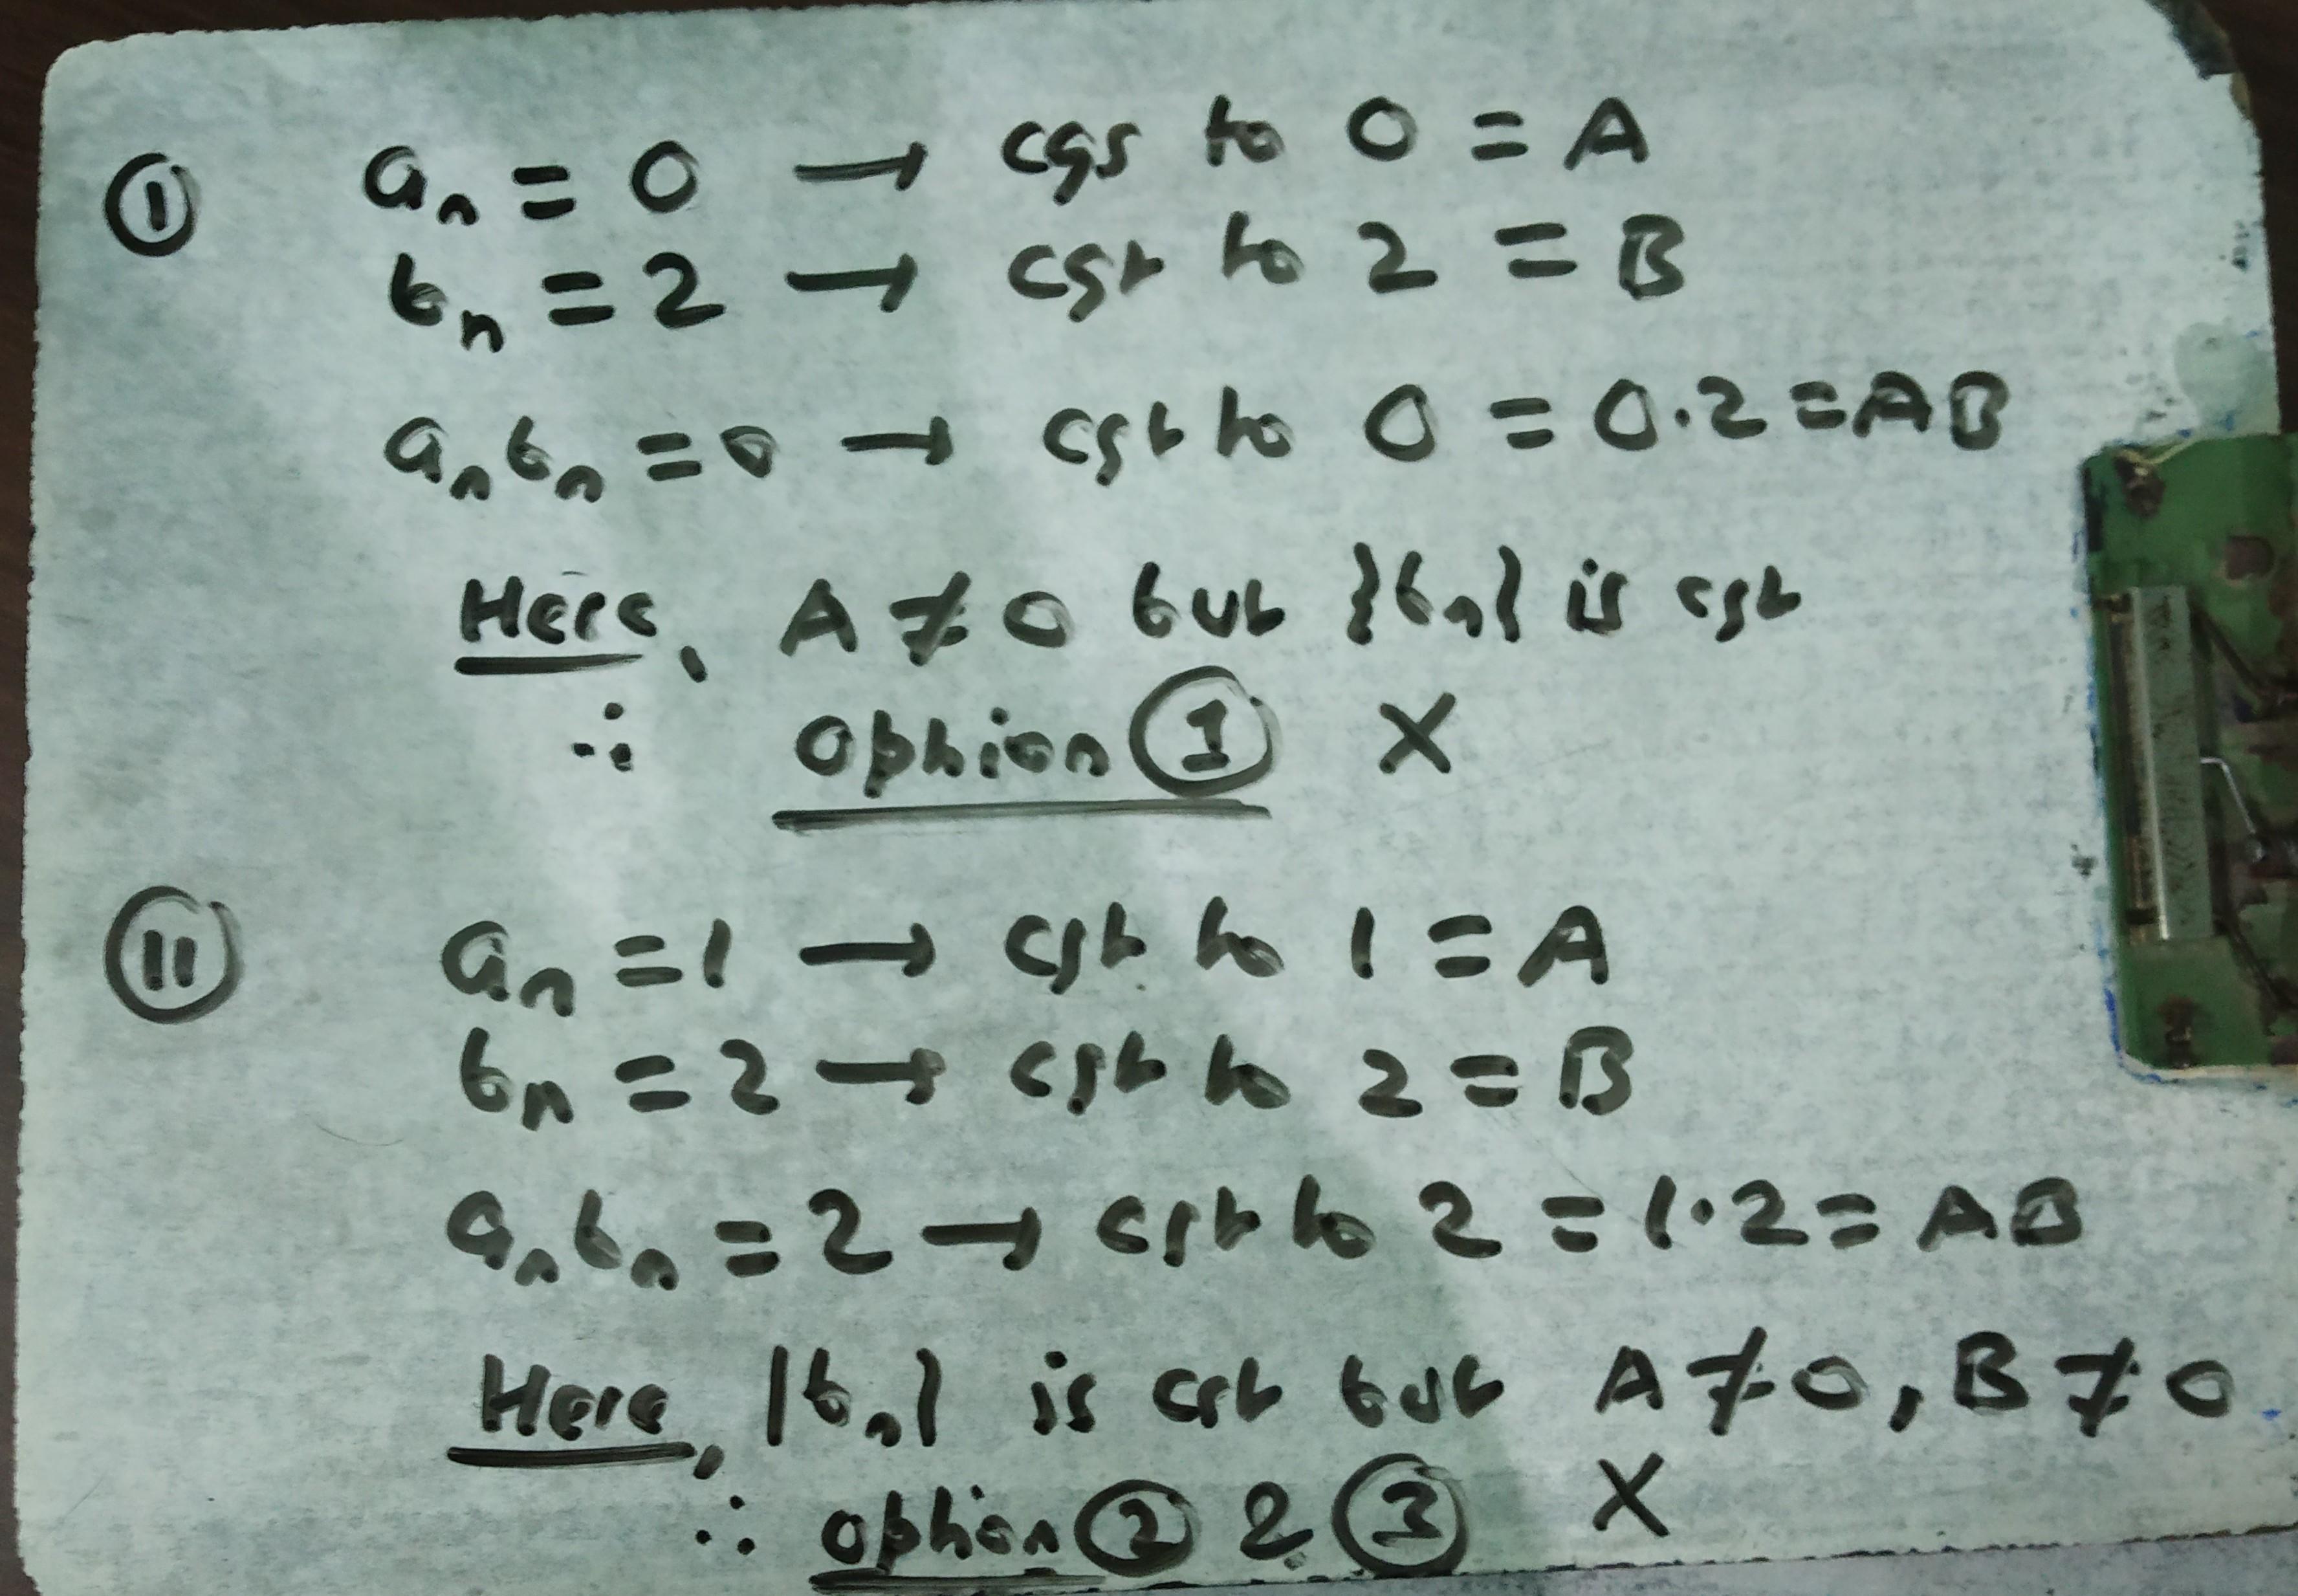 ① aₙ = 0 → cgs to 0 = A
bₙ = 2 → cgt to 2 = B
aₙbₙ = 0 → cgt to 0 = 0.2 = AB
Here, A ≠ 0 but {bₙ} is cgt
∴ Option ① ×
② aₙ = 1 → cgt to 1 = A
bₙ = 2 → cgt to 2 = B
aₙbₙ = 2 → cgt to 2 = 1·2 = AB
Here, {bₙ} is cgt but A ≠ 0, B ≠ 0
∴ option ② & ③ ×